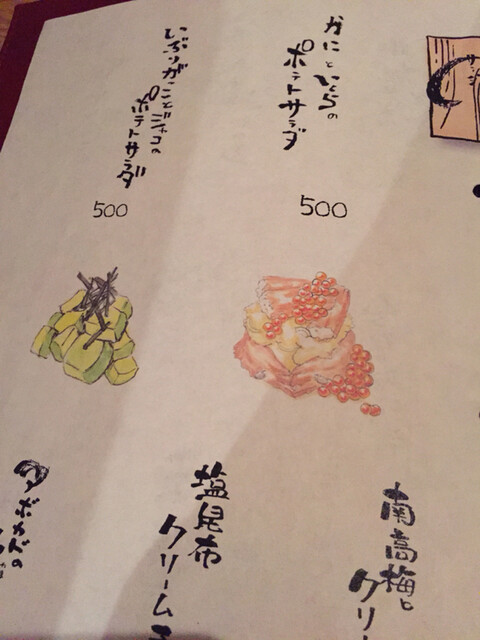 かにといくらの
ポテトサラダ
500
いぶりがっことジャコの
ポテトサラダ
500
南高梅と
クリー
塩昆布
クリーム
アボカドの